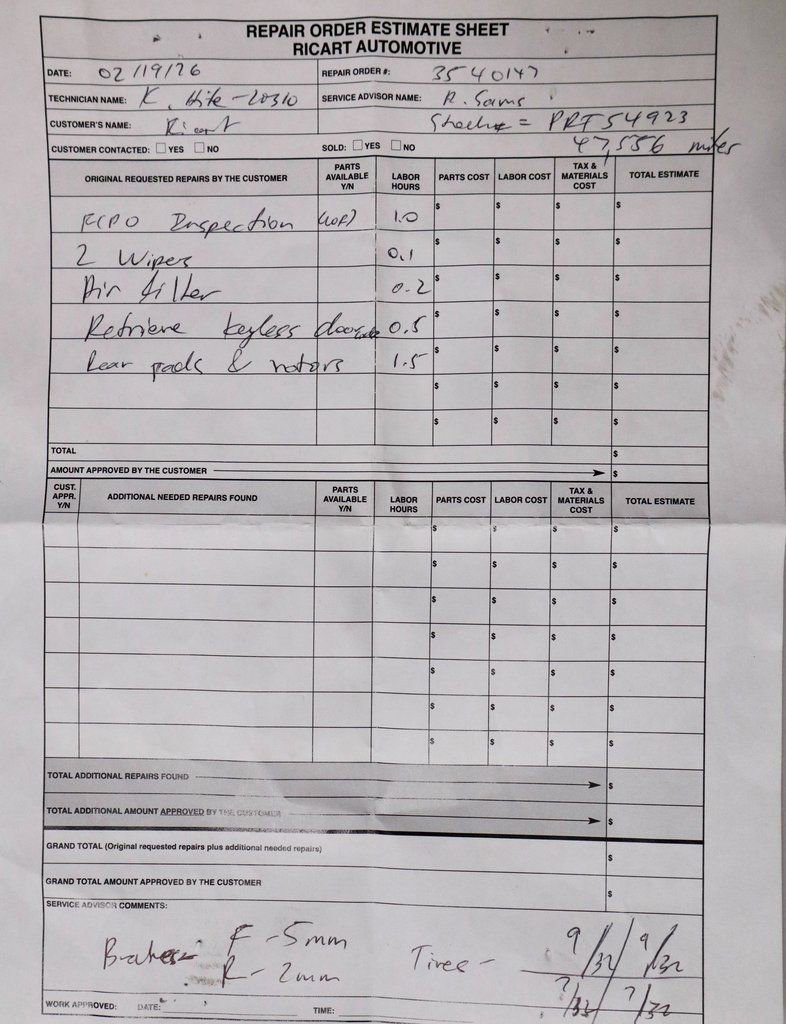 REPAIR ORDER ESTIMATE SHEET
RICART AUTOMOTIVE
DATE: 02/19/26 REPAIR ORDER #: 3540147
TECHNICIAN NAME: K. Hite-20310 SERVICE ADVISOR NAME: R. Sams
CUSTOMER'S NAME: Ricart Stock# = PRT54923
CUSTOMER CONTACTED: YES NO SOLD: YES NO 47,556 miles
ORIGINAL REQUESTED REPAIRS BY THE CUSTOMER PARTS AVAILABLE Y/N LABOR HOURS PARTS COST LABOR COST TAX & MATERIALS COST TOTAL ESTIMATE
FCPO Inspection (LOF) 1.0 $ $ $ $
2 Wipers 0.1 $ $ $ $
Air filter 0.2 $ $ $ $
Retrieve keyless door code 0.5 $ $ $ $
Rear pads & rotors 1.5 $ $ $ $
$ $ $ $
$ $ $ $
TOTAL $
AMOUNT APPROVED BY THE CUSTOMER $
CUST. APPR. Y/N ADDITIONAL NEEDED REPAIRS FOUND PARTS AVAILABLE Y/N LABOR HOURS PARTS COST LABOR COST TAX & MATERIALS COST TOTAL ESTIMATE
$ $ $ $
$ $ $ $
$ $ $ $
$ $ $ $
$ $ $ $
$ $ $ $
$ $ $ $
TOTAL ADDITIONAL REPAIRS FOUND $
TOTAL ADDITIONAL AMOUNT APPROVED BY THE CUSTOMER $
GRAND TOTAL (Original requested repairs plus additional needed repairs) $
GRAND TOTAL AMOUNT APPROVED BY THE CUSTOMER $
SERVICE ADVISOR COMMENTS:
Brakes- F -5mm Tires - 9/32 9/32
R- 2mm 7/32 7/32
WORK APPROVED: DATE: TIME: